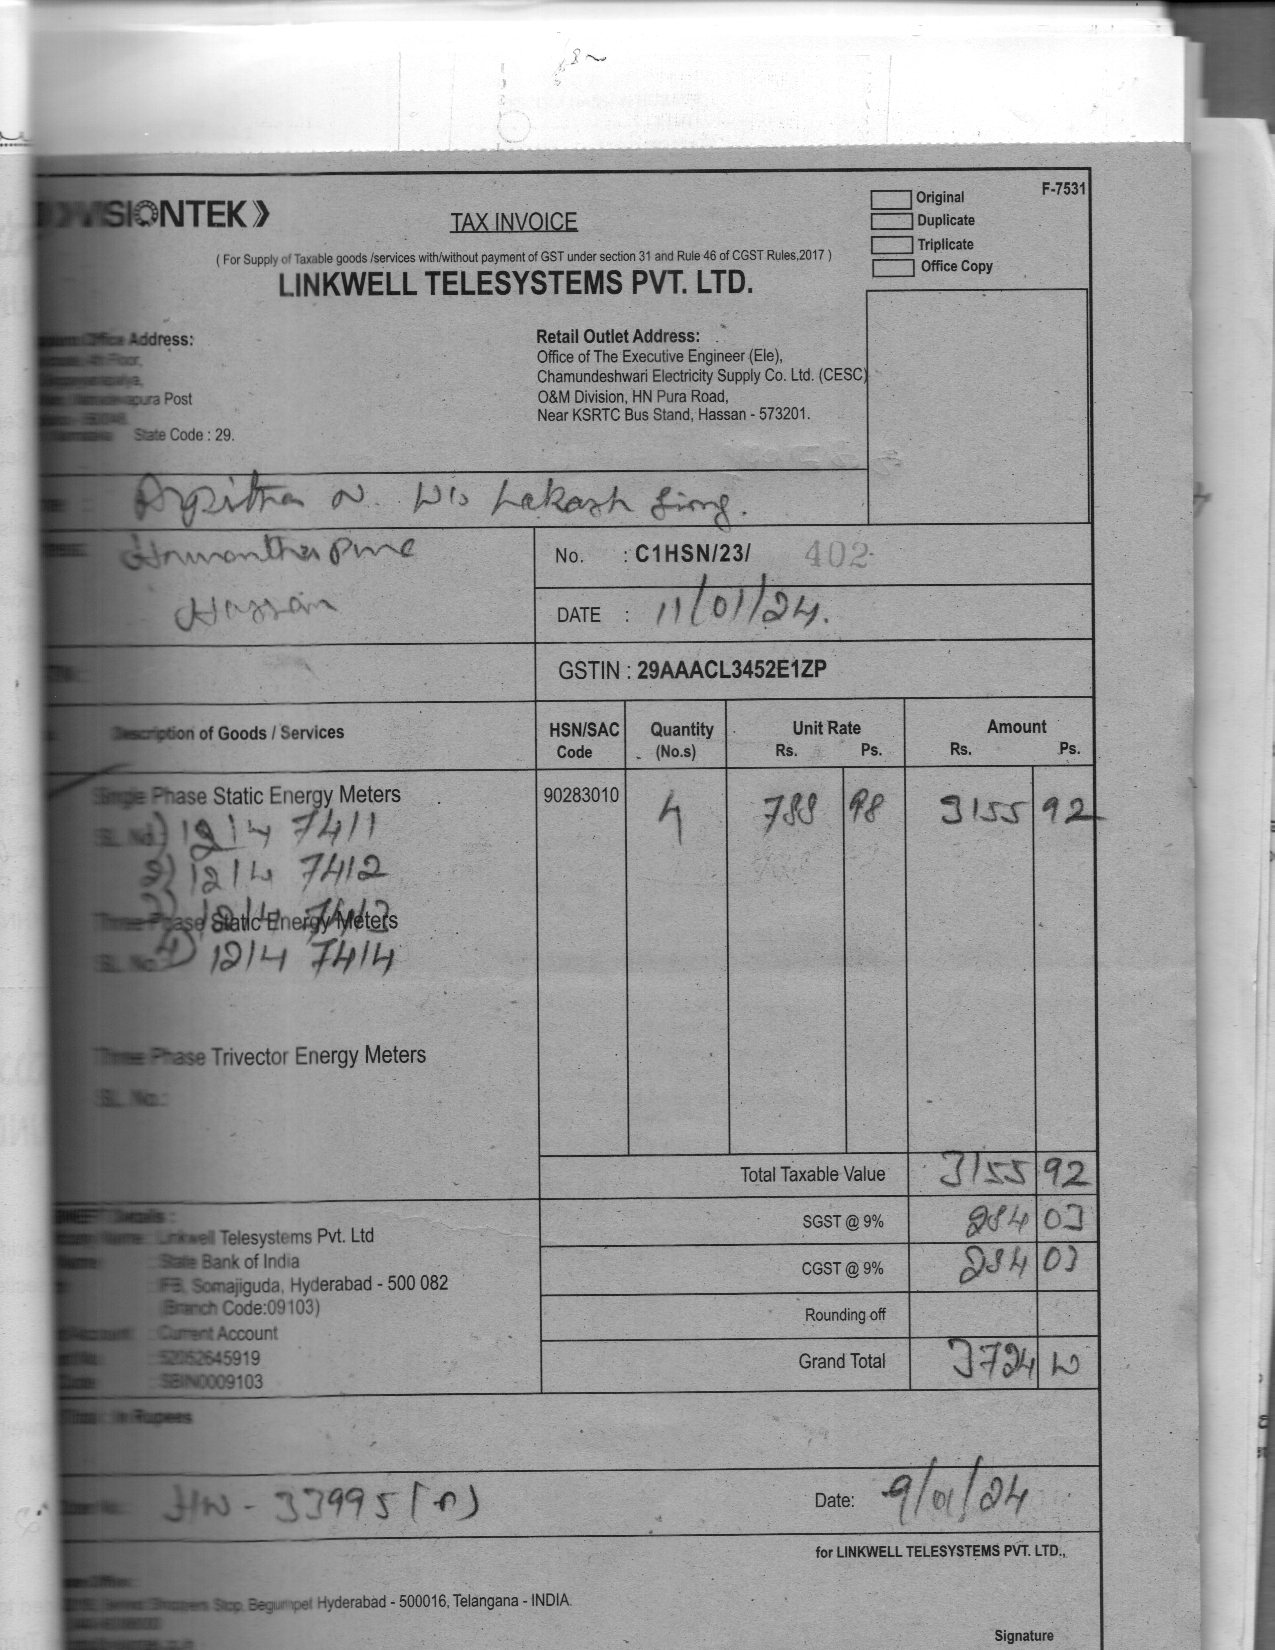 VISIONTEK
TAX INVOICE
Original
F-7531
Duplicate
Triplicate
Office Copy
( For Supply of Taxable goods /services with/without payment of GST under section 31 and Rule 46 of CGST Rules,2017 )
LINKWELL TELESYSTEMS PVT. LTD.
Office Address:
Floor,
Post
State Code : 29.
Retail Outlet Address:
Office of The Executive Engineer (Ele),
Chamundeshwari Electricity Supply Co. Ltd. (CESC)
O&M Division, HN Pura Road,
Near KSRTC Bus Stand, Hassan - 573201.
Arpitha N. W/o
Hassan
No. : C1HSN/23/ 402
DATE : 11/01/24.
GSTIN : 29AAACL3452E1ZP
Description of Goods / Services HSN/SAC Code Quantity (No.s) Unit Rate Rs. Ps. Amount Rs. Ps.
Single Phase Static Energy Meters 90283010 4 788 98 3155 92
SL. No. 1) 1214 7411
2) 1214 7412
3) 1214 7413
Three Phase Static Energy Meters
SL. No. 4) 1214 7414
Three Phase Trivector Energy Meters
SL. No.:
Total Taxable Value 3155 92
SGST @ 9% 284 03
CGST @ 9% 284 03
Rounding off
Grand Total 3724 00
Details :
Name Linkwell Telesystems Pvt. Ltd
Name State Bank of India
IFB, Somajiguda, Hyderabad - 500 082
(Branch Code:09103)
Current Account
52052645919
SBIN0009103
in Rupees
33995
Date: 9/01/24
for LINKWELL TELESYSTEMS PVT. LTD.,
Begumpet Hyderabad - 500016, Telangana - INDIA.
Signature